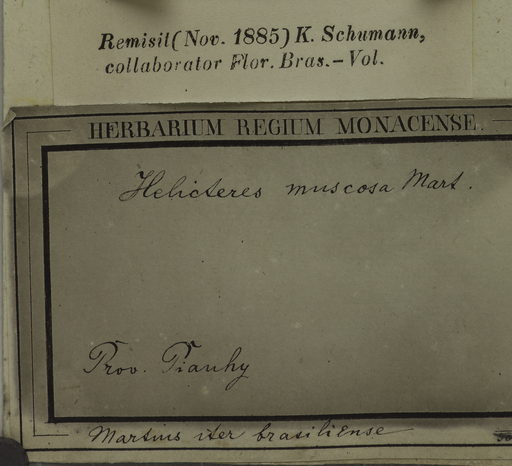 Remisit (Nov. 1885) K. Schumann,
collaborator Flor. Bras. – Vol.
HERBARIUM REGIUM MONACENSE.
Helicteres muscosa Mart.
Prov. Piauhy
Martius iter brasiliense